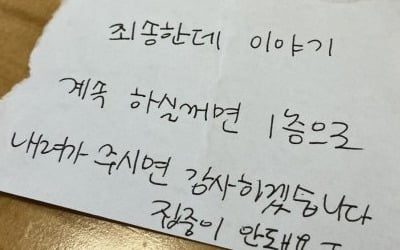 죄송한데 이야기
계속 하실꺼면 1층으로
내려가 주시면 감사하겠습니다
집중이 안돼요